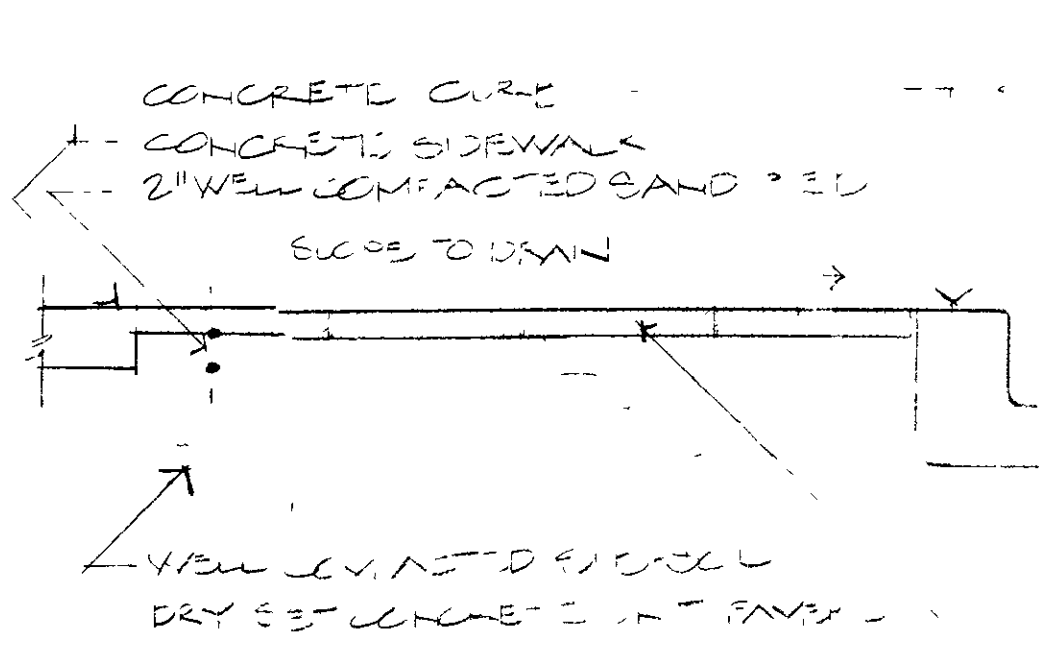 CONCRETE CURB
CONCRETE SIDEWALK
2" WELL COMPACTED SAND BED
SLOPE TO DRAIN
WELL COMPACTED SUBSOIL
DRY SET CONCRETE UNIT PAVERS